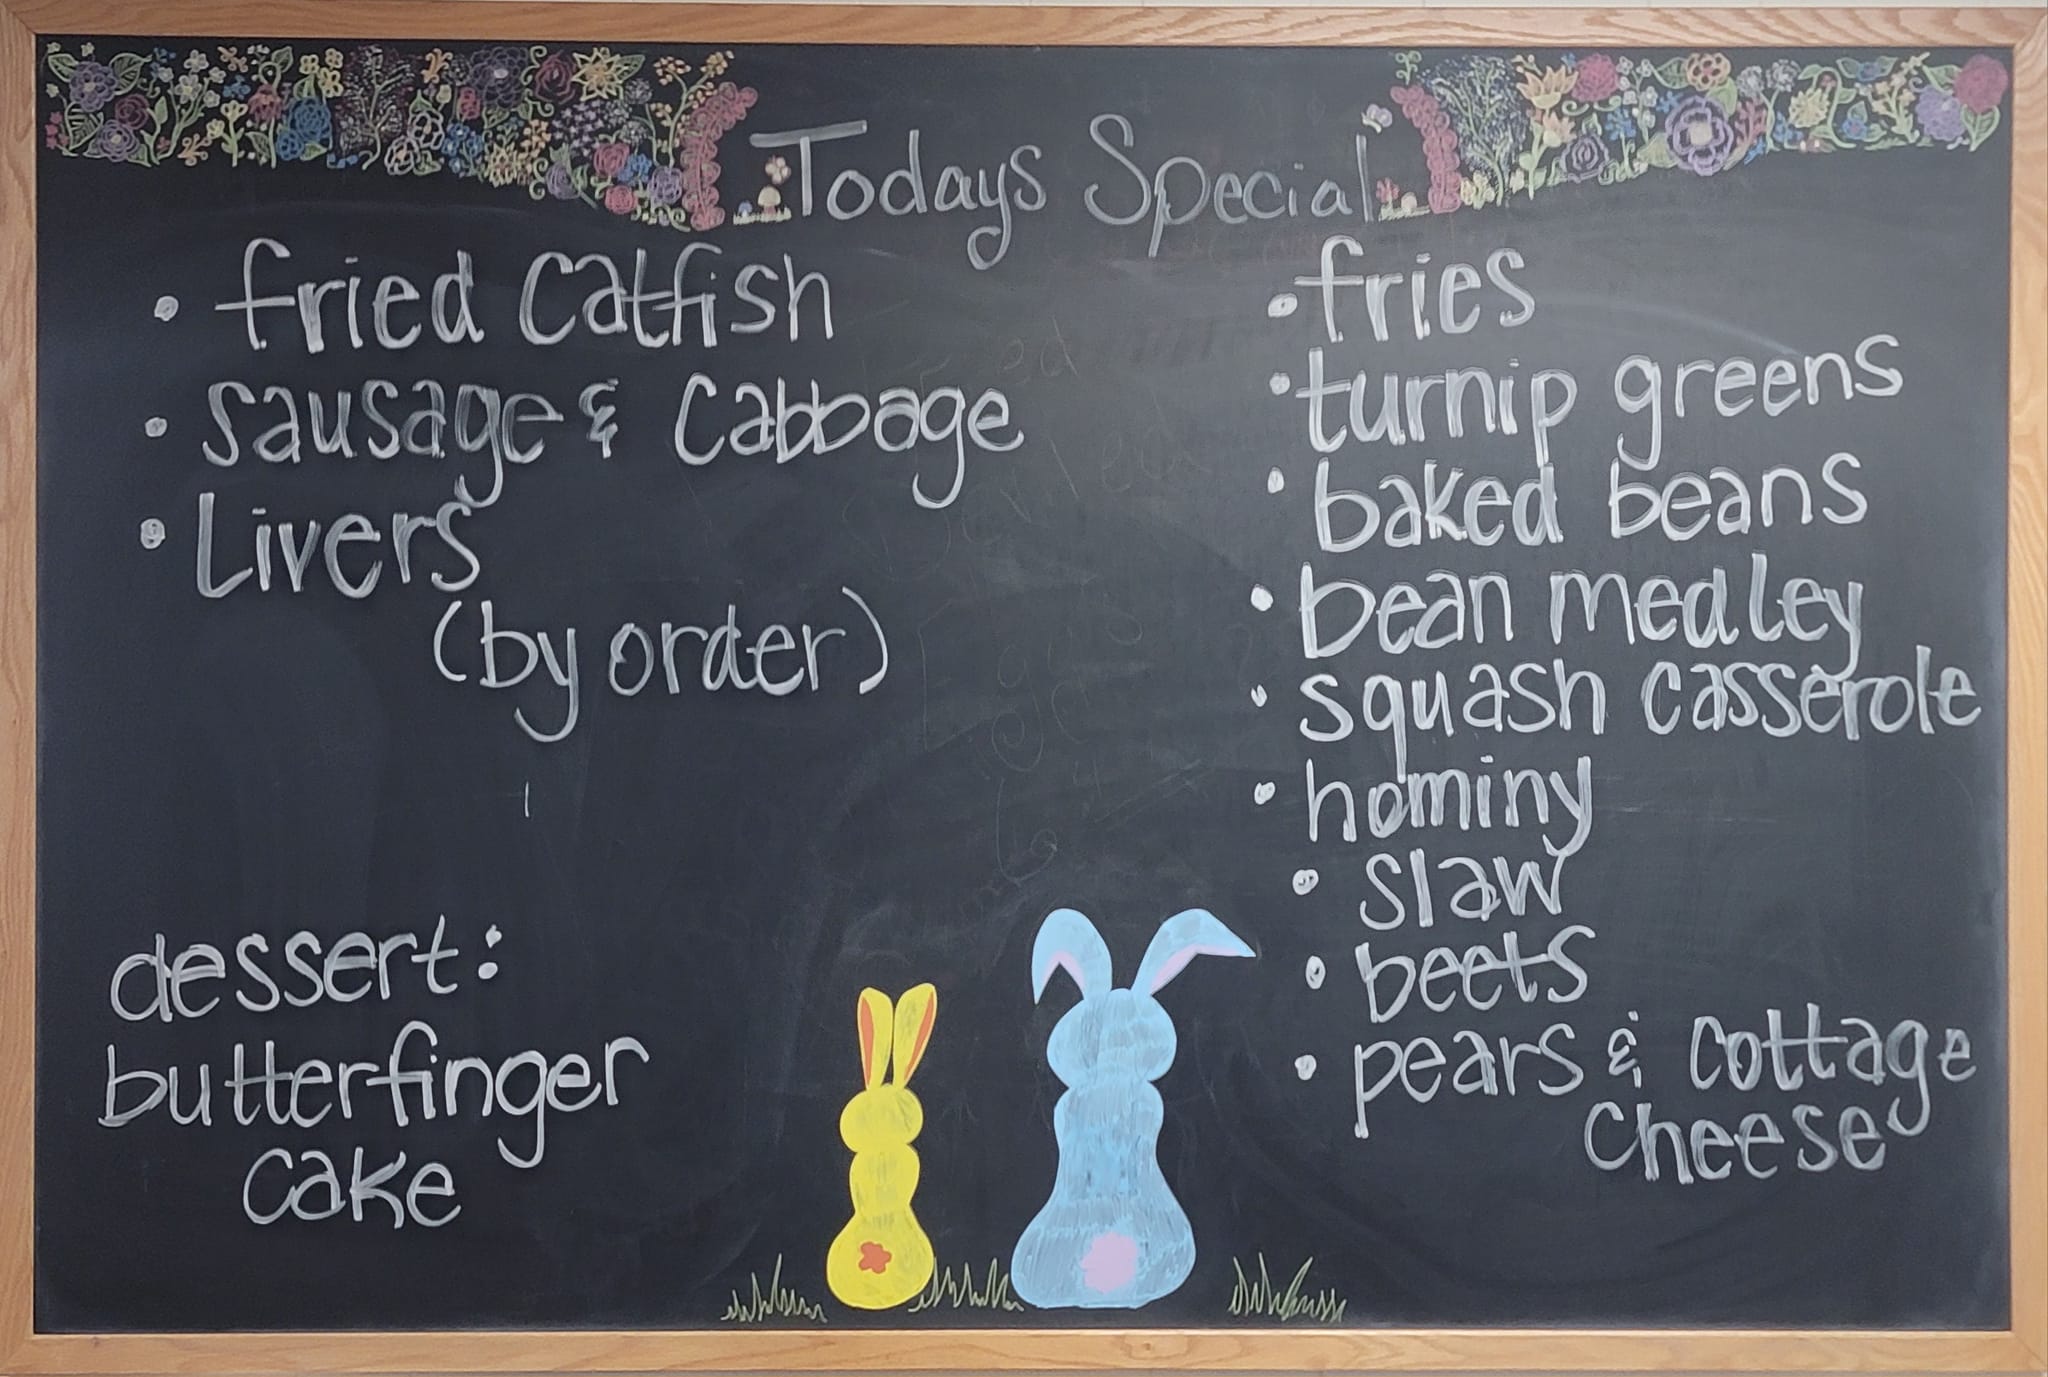 Todays Special
• fried catfish
• sausage & cabbage
• Livers
(by order)
dessert:
butterfinger
cake
• fries
• turnip greens
• baked beans
• bean medley
• squash casserole
• hominy
• slaw
• beets
• pears & cottage
cheese